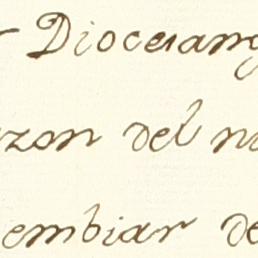 Diocesan
azon del n
embiar de